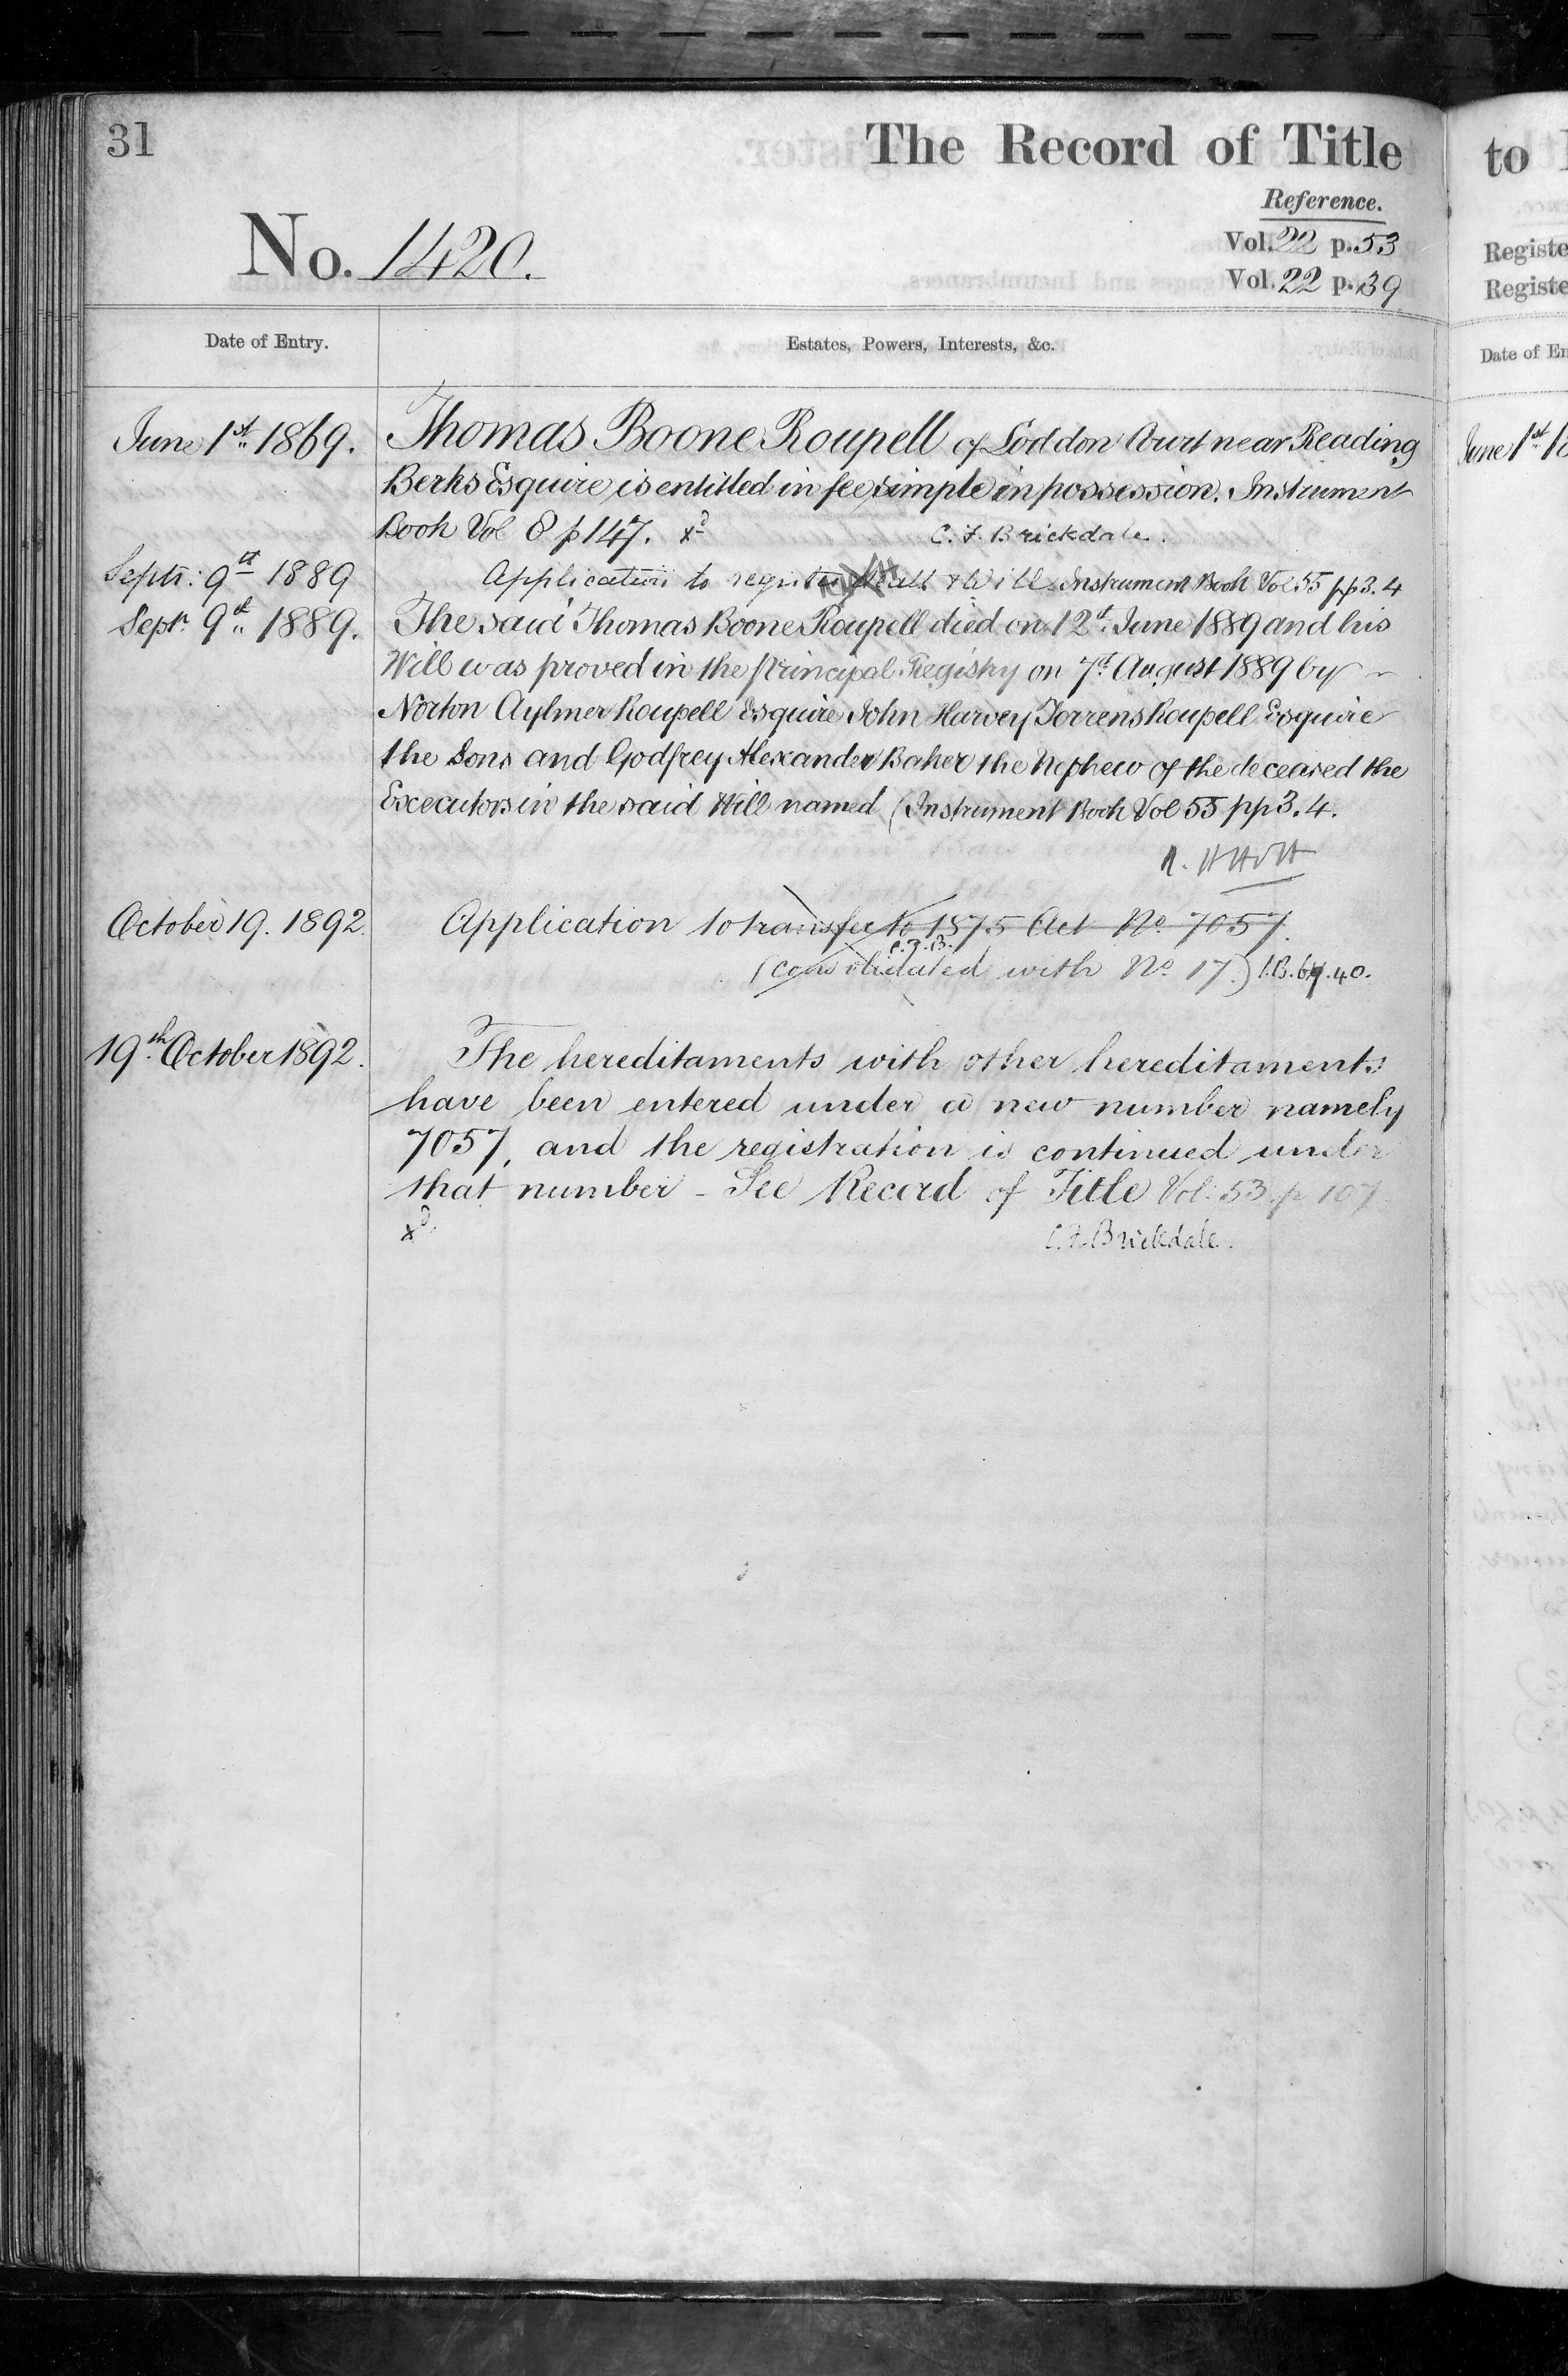 31
The Record of Title
Reference.
No. 1420.
Vol. 22 p. 53
Vol. 22 p. 39
Date of Entry.
Estates, Powers, Interests, &c.
June 1st 1869.
Thomas Boone Roupell of Loddon Court near Reading
Berks Esquire is entitled in fee simple in possession. Instrument
Book Vol 8 p 147. xd C. F. Brickdale.
Septr: 9th 1889
Application to register & Will Instrument Book Vol 55 pp 3.4
Septr 9th 1889.
The said Thomas Boone Roupell died on 12th June 1889 and his
Will was proved in the Principal Registry on 7th August 1889 by
Norton Aylmer Roupell Esquire John Harvey Torrens Roupell Esquire
the Sons and Godfrey Alexander Baker the Nephew of the deceased the
Executors in the said Will named (Instrument Book Vol 55 pp 3.4.
October 19. 1892.
Application to transfer to 1875 Act No. 7057.
C.F.B.
(consolidated with No. 17.) I.B. 40.
19th October 1892.
The hereditaments with other hereditaments
have been entered under a new number namely
7057, and the registration is continued under
that number - See Record of Title Vol: 53 p 107
xd. C. F. Brickdale.
to
Registe
Registe
Date of En
June 1st 18